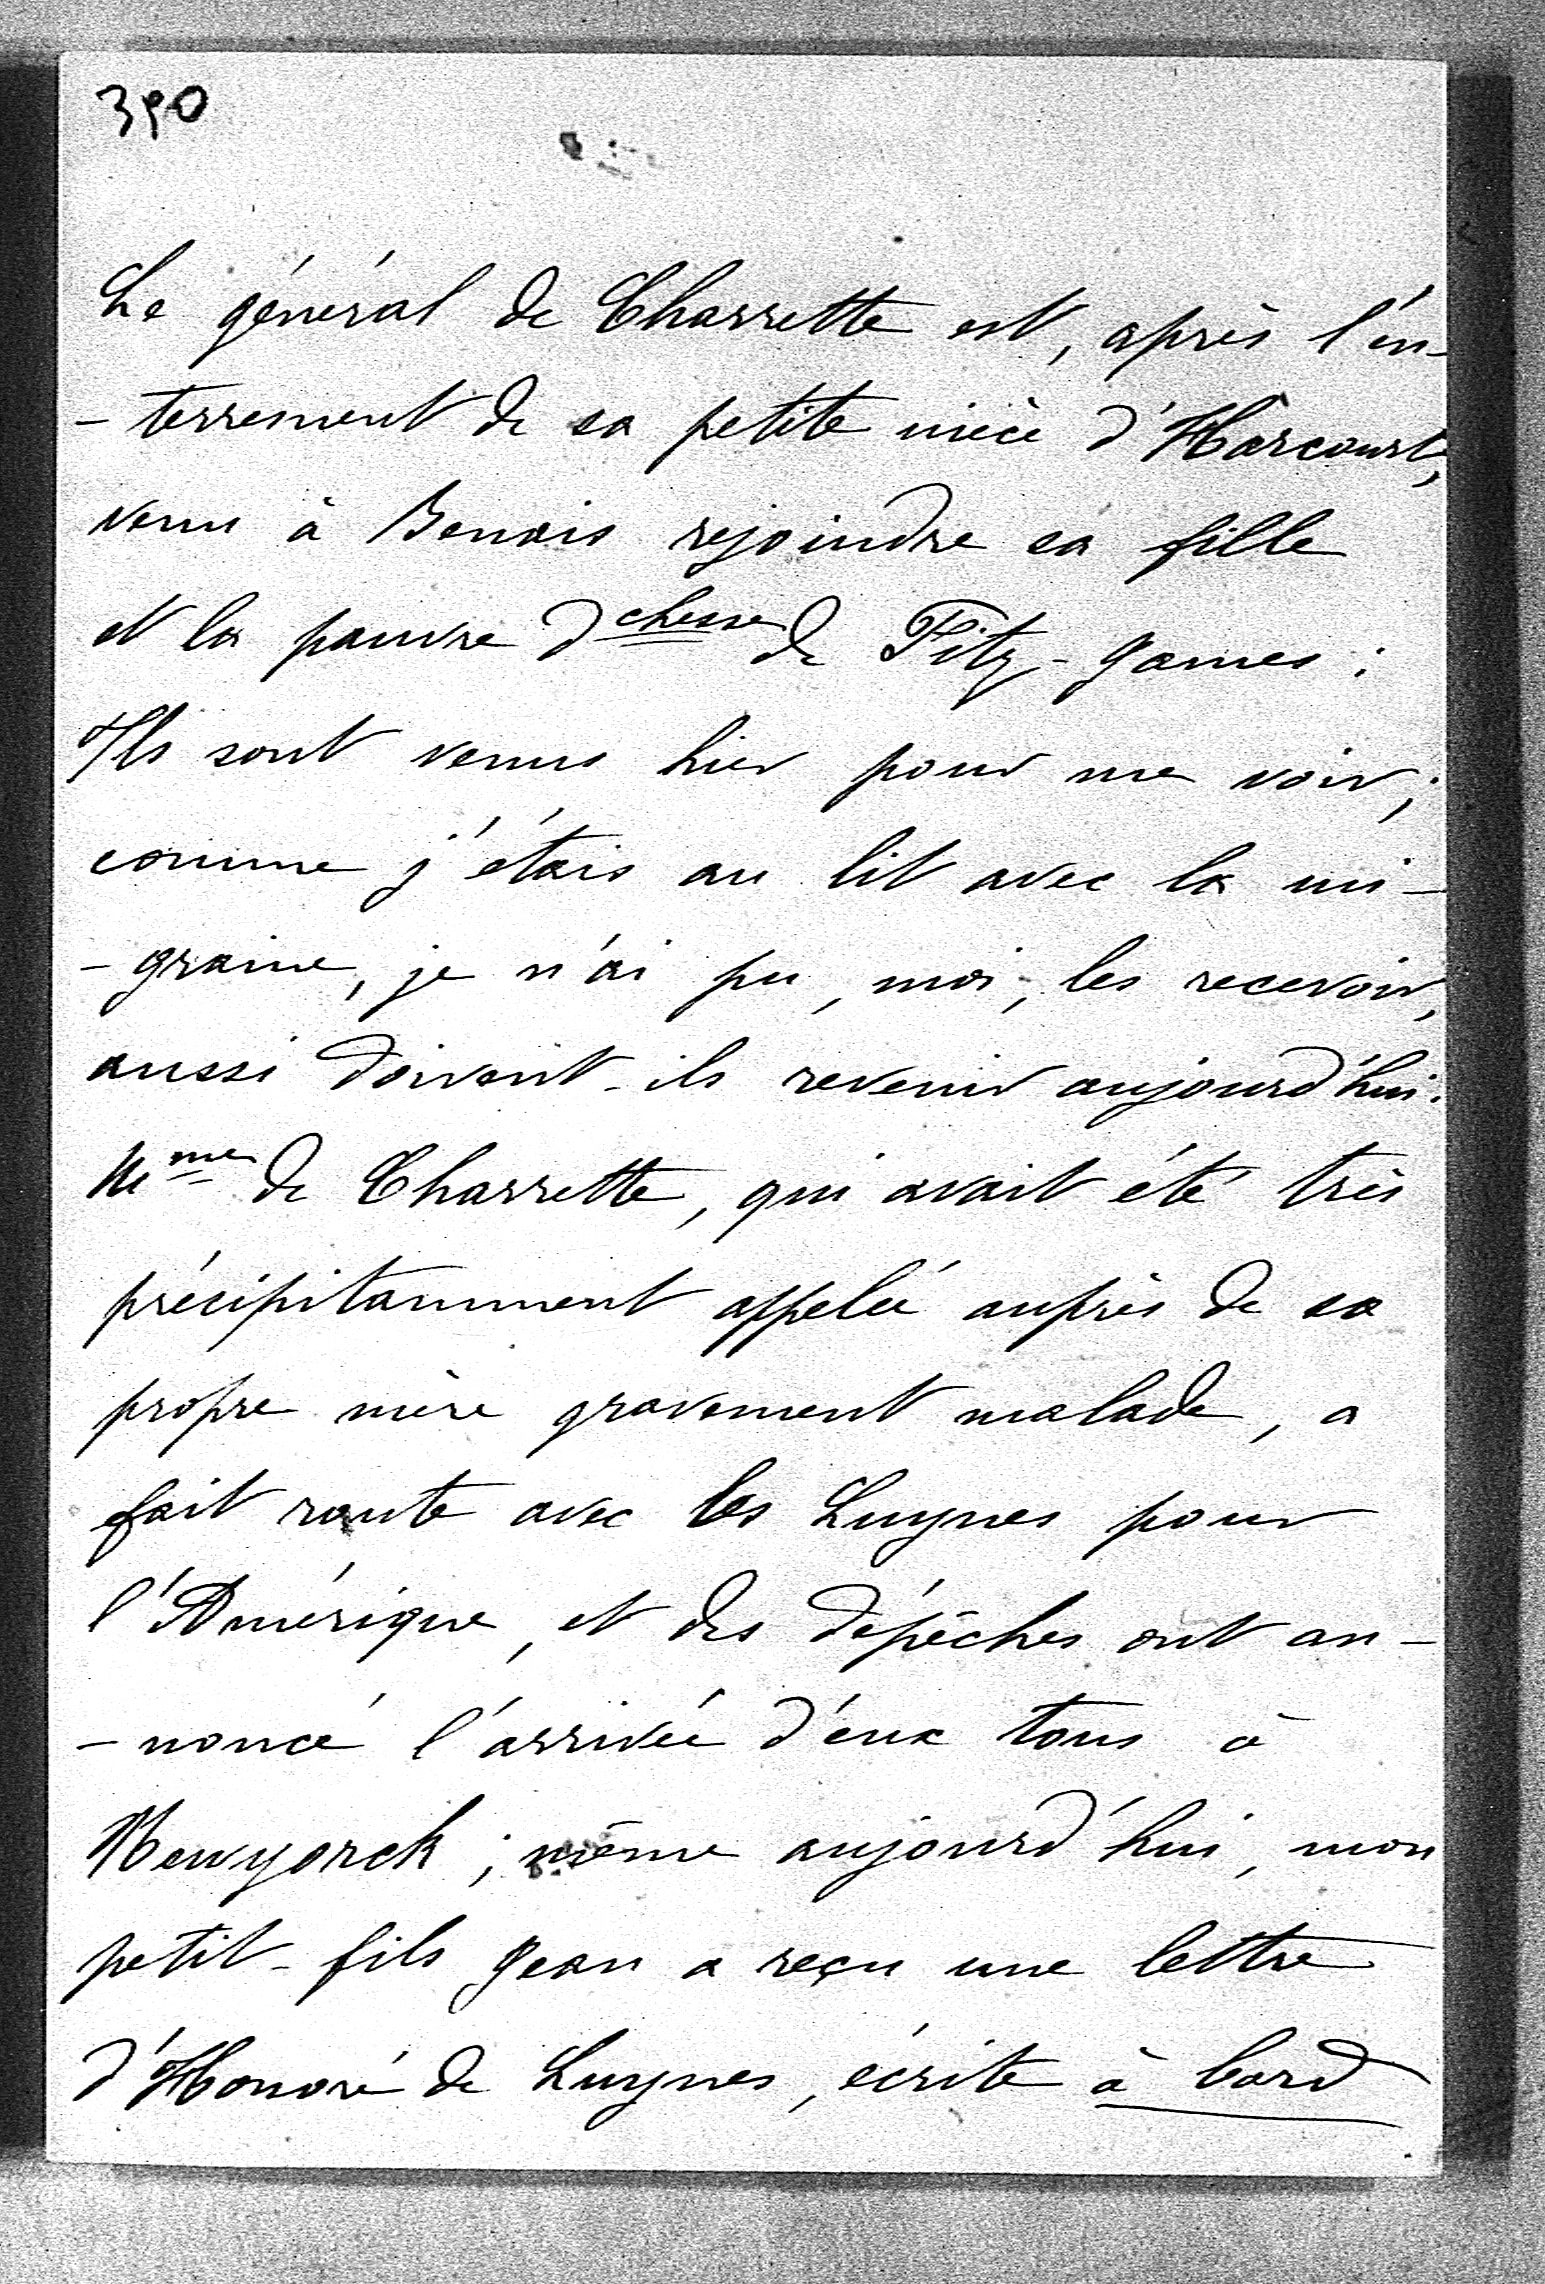 390
Le général de Charrette est, après l'en-
-terrement de sa petite nièce d'Harcourt,
venu à Benais rejoindre sa fille
et la pauvre dchesse de Fitz-James ;
Ils sont venus hier pour me voir ;
comme j'étais au lit avec la mi-
-graine, je n'ai pu, moi, les recevoir,
aussi doivent-ils revenir aujourd'hui.
Mme de Charrette, qui avait été très
précipitamment appelée auprès de sa
propre mère gravement malade, a
fait route avec les Luynes pour
l'Amérique, et des dépêches ont an-
-noncé l'arrivée d'eux tous à
Newyorck ; même aujourd'hui, mon
petit-fils Jean a reçu une lettre
d'Honoré de Luynes, écrite à bord